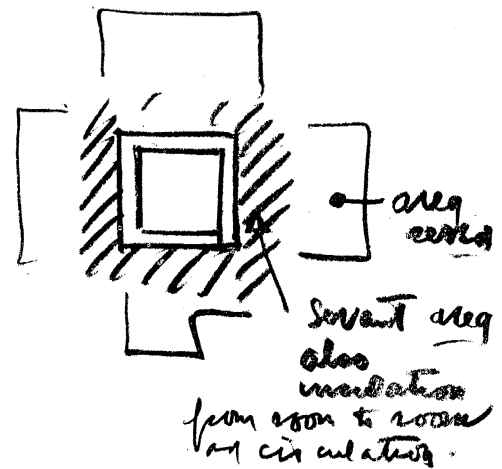 area
served
Servant area
also
insulation
from room to room
and circulation.